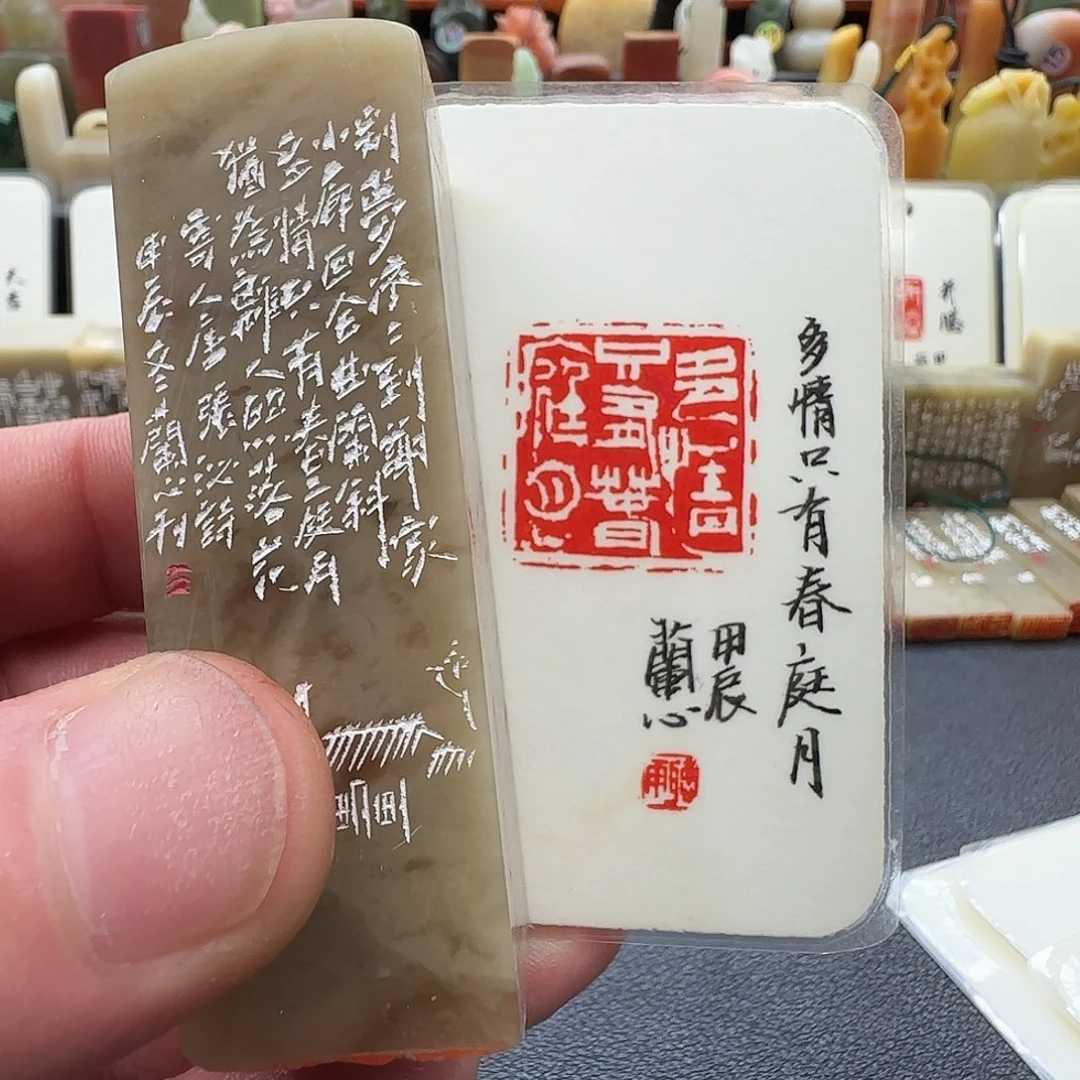 别夢濟〻到謝家
小廊回合曲蘭斜
多情只有春庭月
猶為離人照落花
寄人唐張泌詩
甲辰冬蘭心刊
多情
只有春
庭月
多情只有春庭月
甲辰
蘭心
大吉